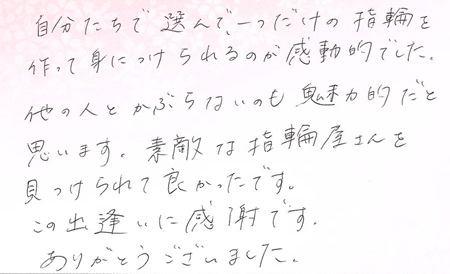 自分たちで選んで、一つだけの指輪を
作って身につけられるのが感動的でした。
他の人とかぶらないのも魅力的だと
思います。素敵な指輪屋さんを
見つけられて良かったです。
この出逢いに感謝です。
ありがとうございました。